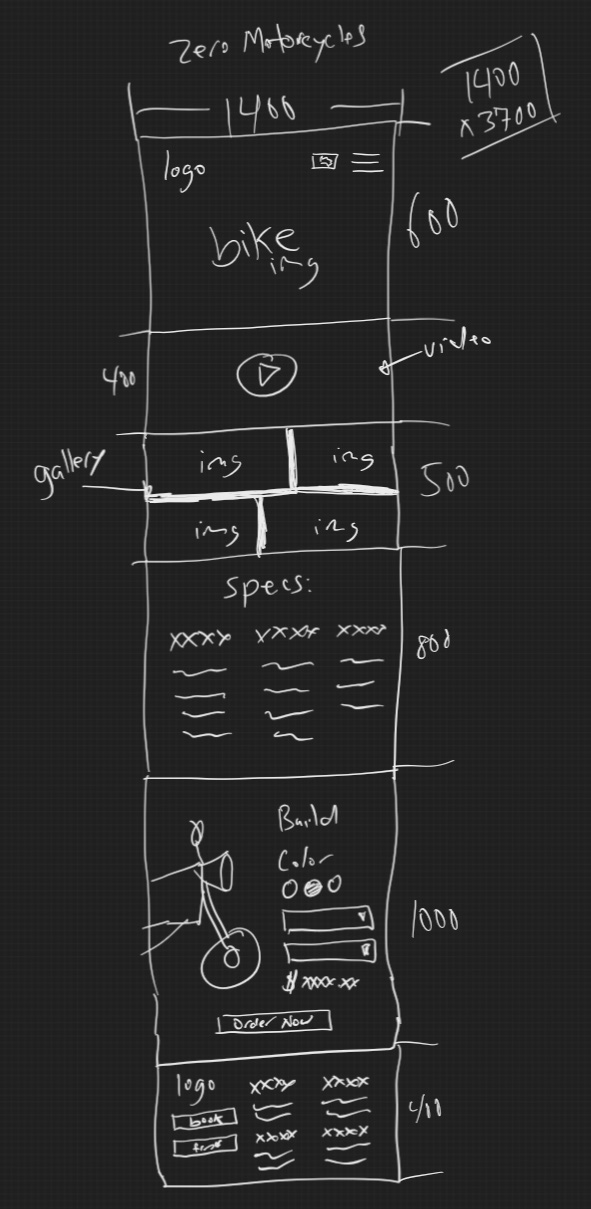 Zero Motorcycles
1400
1400
x 3700
logo
600
bike
img
400
video
gallery
img
img
500
img
img
Specs:
xxxx
xxxx
xxxx
800
Build
Color
1000
$ xxxx.xx
Order Now
logo
xxxx
xxxx
400
book
xxxx
xxxx